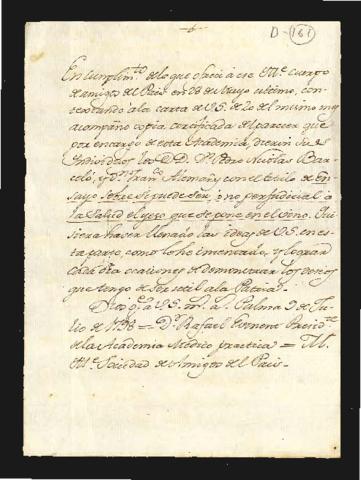 D-161
En cumplim.to de lo que ofrecí a ese Ill.e Cuerpo
de amigos del Pais en 28 de Mayo ultimo, con-
textando a la carta de V.S. de 20 del mismo m.s
acompaño copia certificada del parecer que
por encargo de esta Academia, dieron sus
Individuos los D.D. Pedro Nicolas Bar-
celó, y D.n Fran.co Alemañy con el titulo de En-
sayo sobre si puede ser, ó no perjudicial à
la Salud el yeso que se pone en el vino. Qui-
siera haver llenado las ideas de V.S. en es-
ta parte, como lo he intentado, y lograr
cada dia ocasiones de demonstrar los deseos
que tengo de ser util a la Patria.
Dios g.e a V.S. m.s a.s Palma 9 de Ju-
lio de 1798 = D.r Rafael Presid.te
de la Academia Medico practica = M.
Ill.e Sociedad de Amigos del Pais.